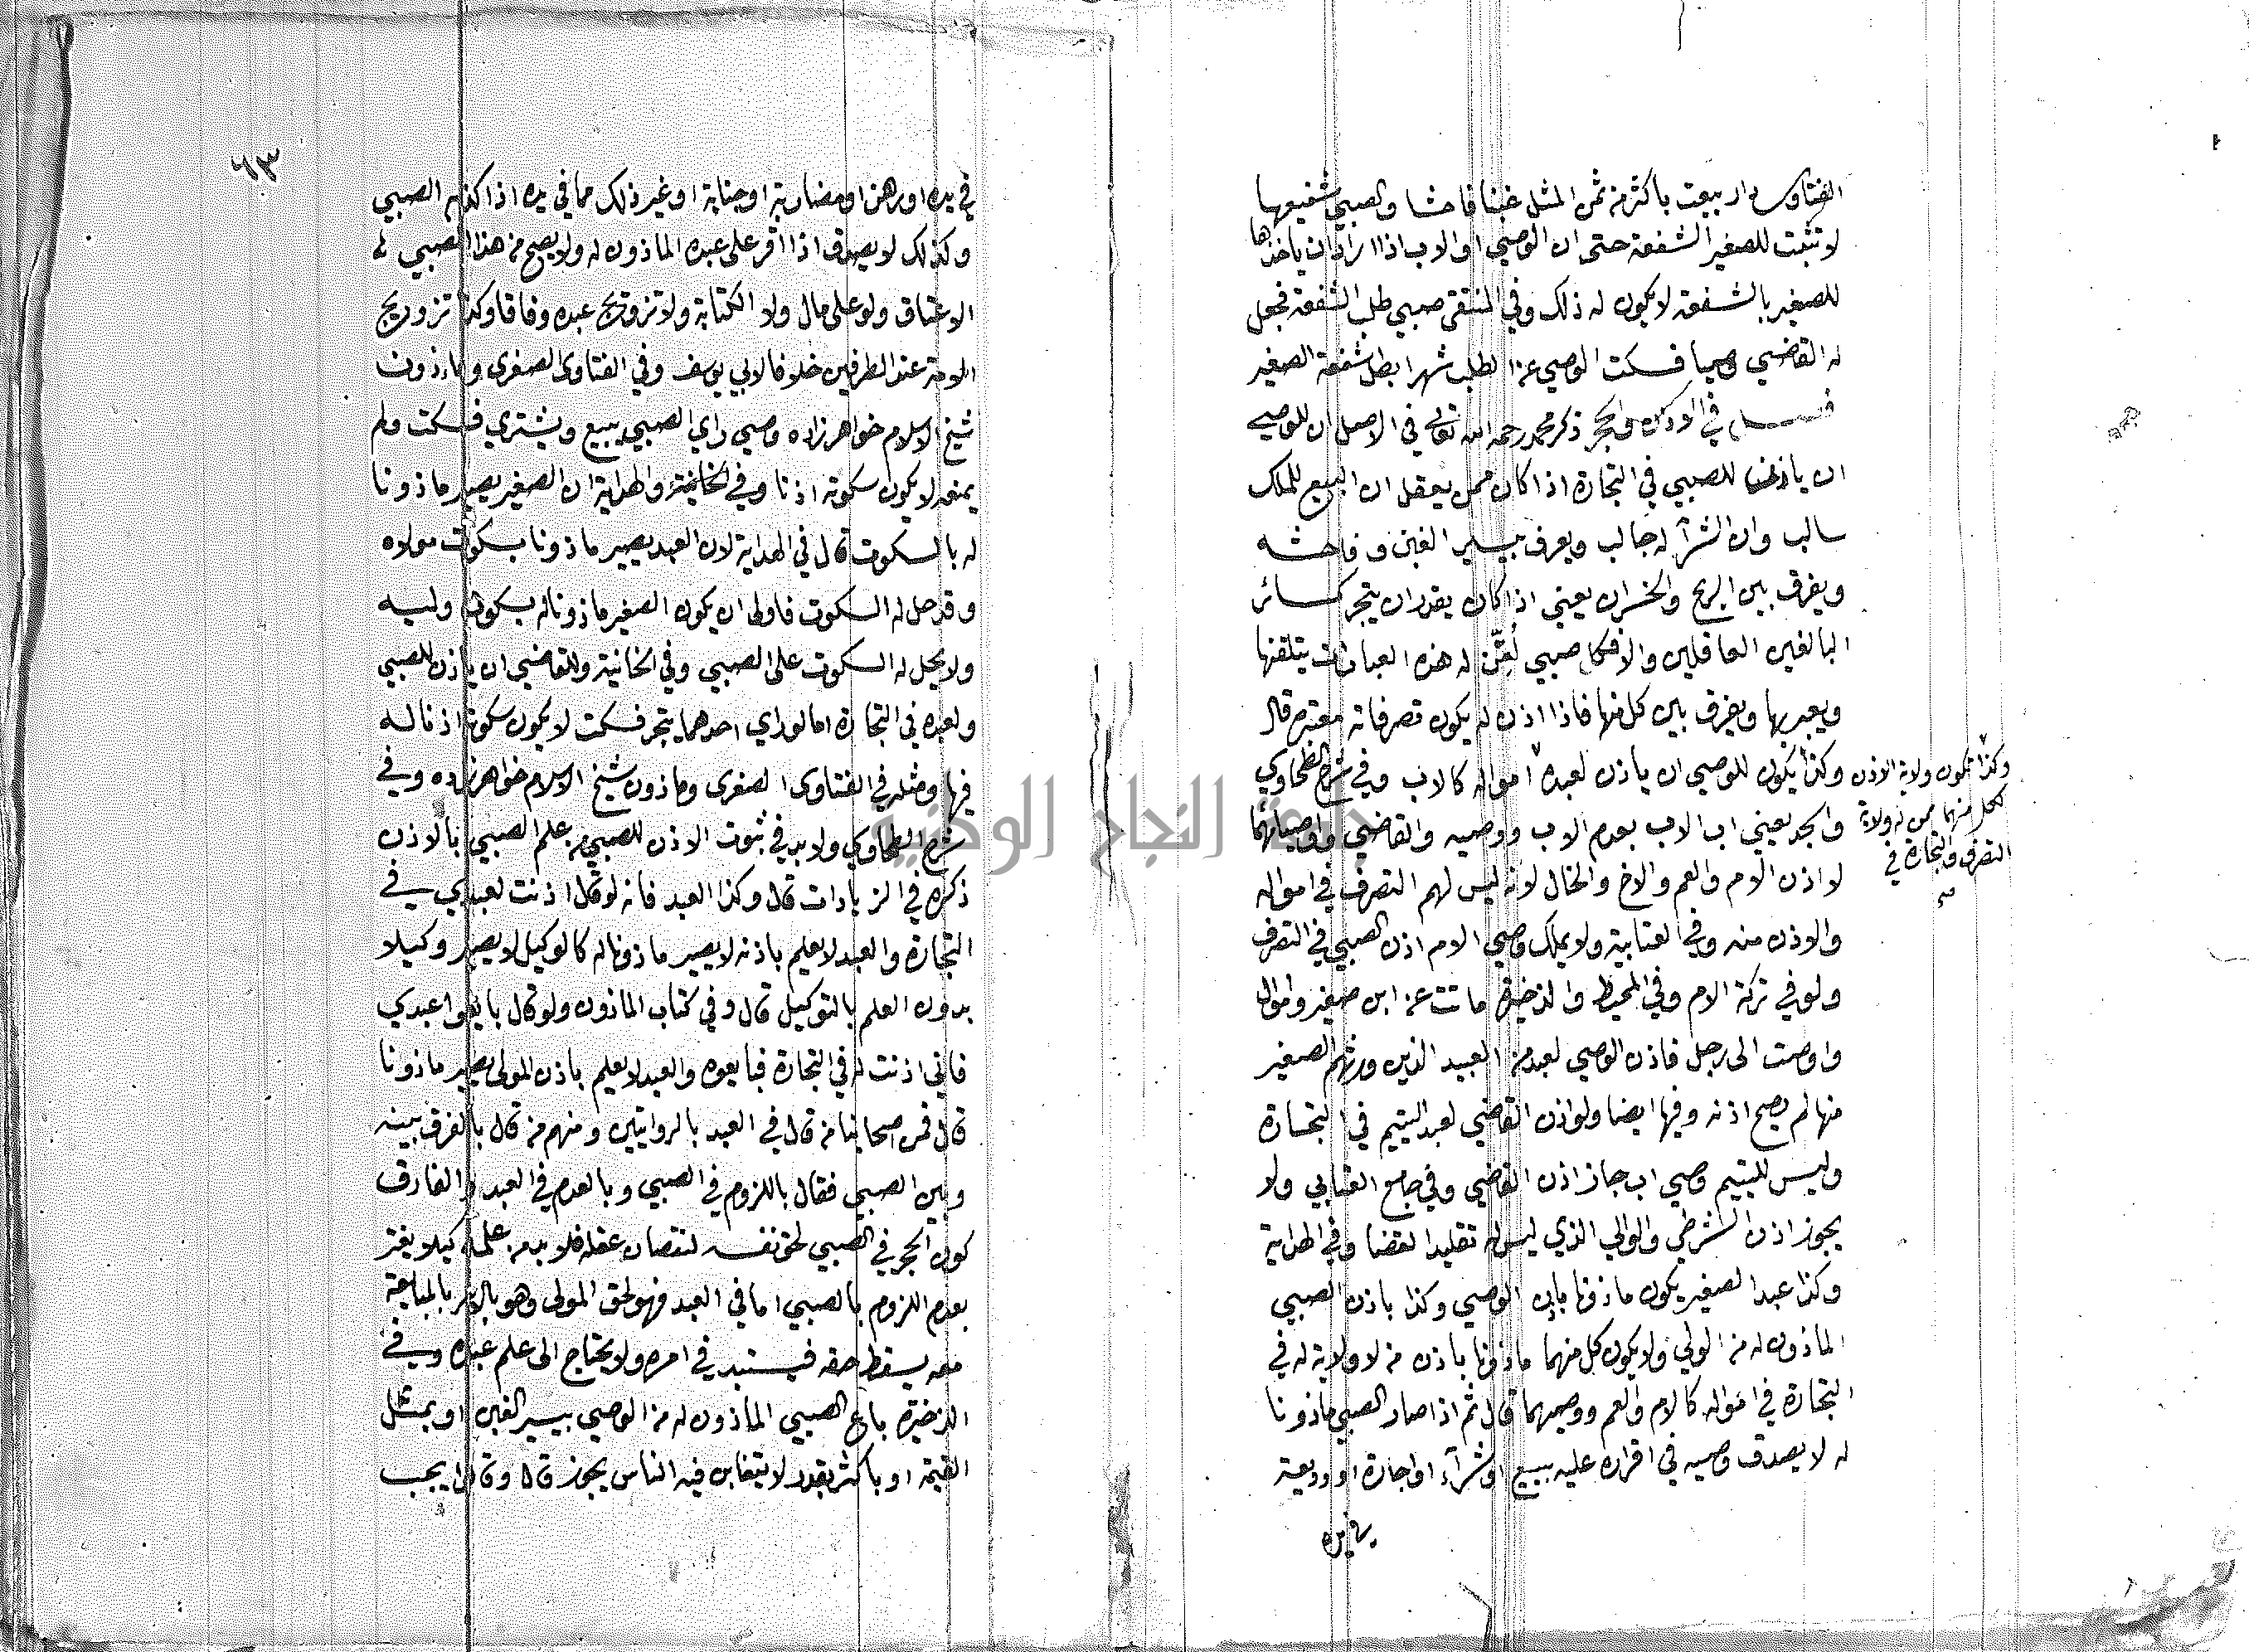 الفتاوى دار بيعت باكثر من ثمن المثل غبنا فاحشا والصبي شفيعها
لا تثبت للصغير الشفعة حتى ان الوصي او الاب اذا اراد ان ياخذها
للصغير بالشفعة لا يكون له ذلك وفي المنتقى صبي طلب الشفعة فجعل
له القاضي وصيا فسكت الوصي عن الطلب شهرا بطل شفعة الصغير
فصل في الاذن والحجر ذكر محمد رحمه الله تعالى في الاصل ان للوصي
ان ياذن للصبي في التجارة اذا كان ممن يعقل ان البيع للملك
سالب وان الشرآ له جالب ويعرف يسير الغبن وفاحشه
ويفرق بين الربح والخسران يعني اذا كان يقدر ان يتجر كسائر
البالغين العاقلين والا فكل صبي لُقّن له هذه العبارات يتلقنها
ويعبر بها ويفرق بين كل منها فاذا اذن له يكون تصرفاته معتبرة قال
وكذا يكون للوصي ان ياذن لعبده امواله كالاب وفي شرح الطحاوي
والجد يعني اب الاب بعدم الاب ووصيه والقاضي واوصيائهما
لا اذن الام والعم والاخ والخال لانه ليس لهم التصرف في امواله
والاذن منه وفي العتابية ولا يملك وصي الام اذن الصبي في التصرف
ولو في تركة الام وفي المحيط والذخيرة ماتت عن ابن صغير واموال
واوصت الى رجل فاذن الوصي لعبد من العبيد الذين ورثهم الصغير
منها لم يصح اذنه وفيها ايضا ولو اذن القاضي لعبد اليتيم في التجارة
وليس لليتيم وصي اب جاز اذن القاضي وفي جامع العتابي ولا
يجوز اذن الشرطي والوالي الذي ليس له تقليد القضا وفي الهداية
وكذا عبد الصغير يكون ماذونا باذن الوصي وكذا باذن الصبي
الماذون له من الولي ولا يكون كل منهما ماذونا باذن من لا ولاية له في
التجارة في امواله كالام والعم ووصيهما قال ثم اذا صار الصبي ماذونا
له لا يصدق وصيه في اقراره عليه ببيع او شرآء او اجارة او وديعة
في يده
وكذا تكون ولاية الاذن
لكل منهما ممن له ولاية
التصرف والتجارة في
٦٣
في يده او رهن او مضاربة او جناية او غير ذلك مما في يده اذا كذبه الصبي
وكذلك لا يصدق اذا اقر على عبده الماذون له ولا يصح من هذا الصبي
الاعتاق ولو على مال ولا الكتابة ولا تزويج عبده وفاقا وكذا تزويج
الامة عند الطرفين خلافا لابي يوسف وفي الفتاوى الصغرى وماذون
شيخ الاسلام خواهر زاده وصي راي الصبي يبيع ويشتري فسكت ولم
يمنعه لا يكون سكوته اذنا وفي الخانية والهداية ان الصغير يصير ماذونا
له بالسكوت قال في الهداية لان العبد يصير ماذونا بسكوت مولاه
وقد حل له السكوت فاولى ان يكون الصغير ماذونا له بسكوت وليه
ولا يحل له السكوت على الصبي وفي الخانية وللقاضي ان ياذن للصبي
ولعبده في التجارة اما لو راي احدهما يتجر فسكت لا يكون سكوته اذنا له
فيها ومثله في الفتاوى الصغرى وماذون شيخ الاسلام خواهر زاده وفي
شرح الطحاوي ولا بد في ثبوت الاذن للصبي من علم الصبي بالاذن
ذكره في الزيادات قال وكذا العبد فانه لو قال اذنت لعبدي في
التجارة والعبد لا يعلم باذنه لا يصير ماذونا له كالوكيل لا يصير وكيلا
بدون العلم بالتوكيل قال وفي كتاب الماذون ولو قال بايعوا عبدي
فاني اذنت له في التجارة فبايعوه والعبد لا يعلم باذن المولى يصير ماذونا
قال فمن اصحابنا من قال في العبد بالروايتين ومنهم من قال بالفرق بينه
وبين الصبي فقال باللزوم في الصبي وبالعدم في العبد والفارق
كون الحجر في الصبي لحق نفسه لنقصان عقله فلا بد من علمه كيلا يغتر
بعدم اللزوم بالصبي اما في العبد فهو لحق المولى وهو بالامر بالمبايعة
معه يسقط حقه فيستبد في امره ولا يحتاج الى علم عبده وفي
الذخيرة باع الصبي الماذون له من الوصي بيسير الغبن او بمثل
القيمة او باكثر بقدر لا يتغابن فيه الناس يجوز قال وقالا يجب
جامعة النجاح الوطنية